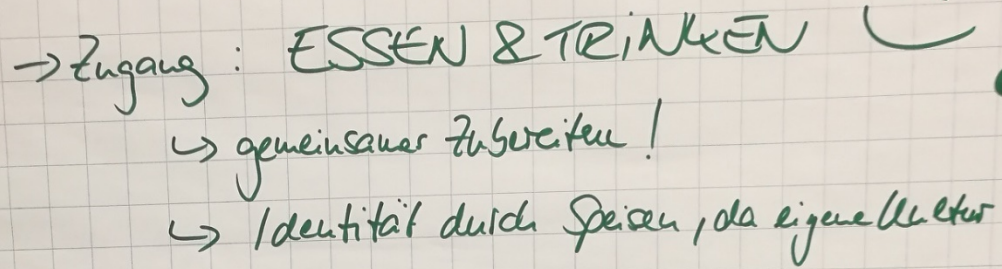 → Zugang: ESSEN & TRiNKEN
↳ gemeinsames Zubereiten!
↳ Identität durch Speisen, da eigene Kultur